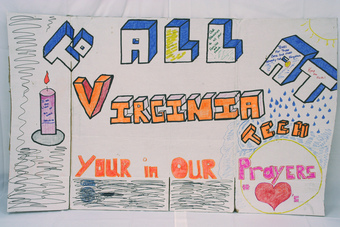 To ALL AT
VIRGINIA
TECH
YOUR in OUR Prayers